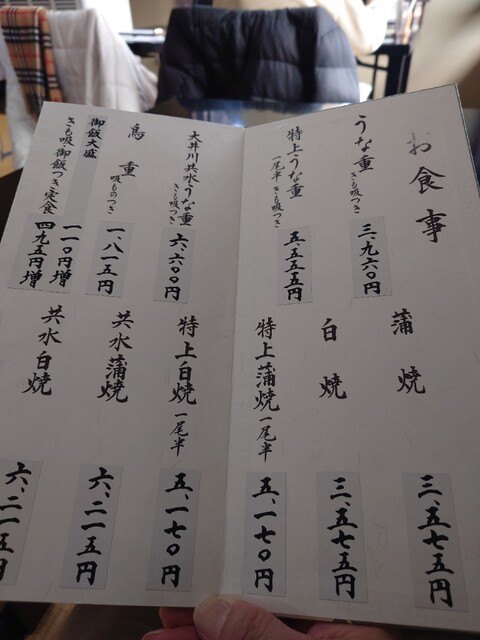 お食事
うな重 きも吸つき
三、九六〇円
特上うな重
一尾半 きも吸つき
五、五五五円
大井川共水うな重
きも吸つき
六、六〇〇円
鳥重 吸ものつき
一、八一五円
御飯大盛
一一〇円増
きも吸 御飯つき定食
四九五円増
蒲焼
三、五七五円
白焼
三、五七五円
特上蒲焼 一尾半
五、一七〇円
特上白焼 一尾半
五、一七〇円
共水蒲焼
六、二一五円
共水白焼
六、二一五円